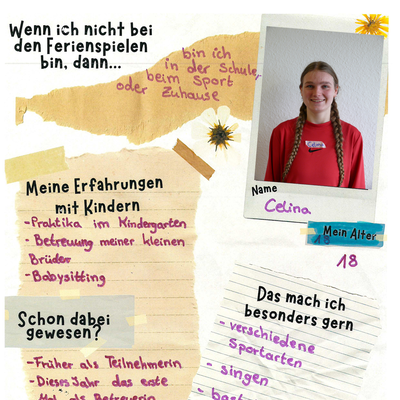 Wenn ich nicht bei
den Ferienspielen
bin, dann...
bin ich
in der Schule,
beim Sport
oder Zuhause
Celina
Name
Celina
Mein Alter
18
18
Meine Erfahrungen
mit Kindern
-Praktika im Kindergarten
- Betreuung meiner kleinen
Brüder
-Babysitting
Schon dabei
gewesen?
-Früher als Teilnehmerin
-Dieses Jahr das erste
Mal als Betreuerin
Das mach ich
besonders gern
- verschiedene
Sportarten
- singen